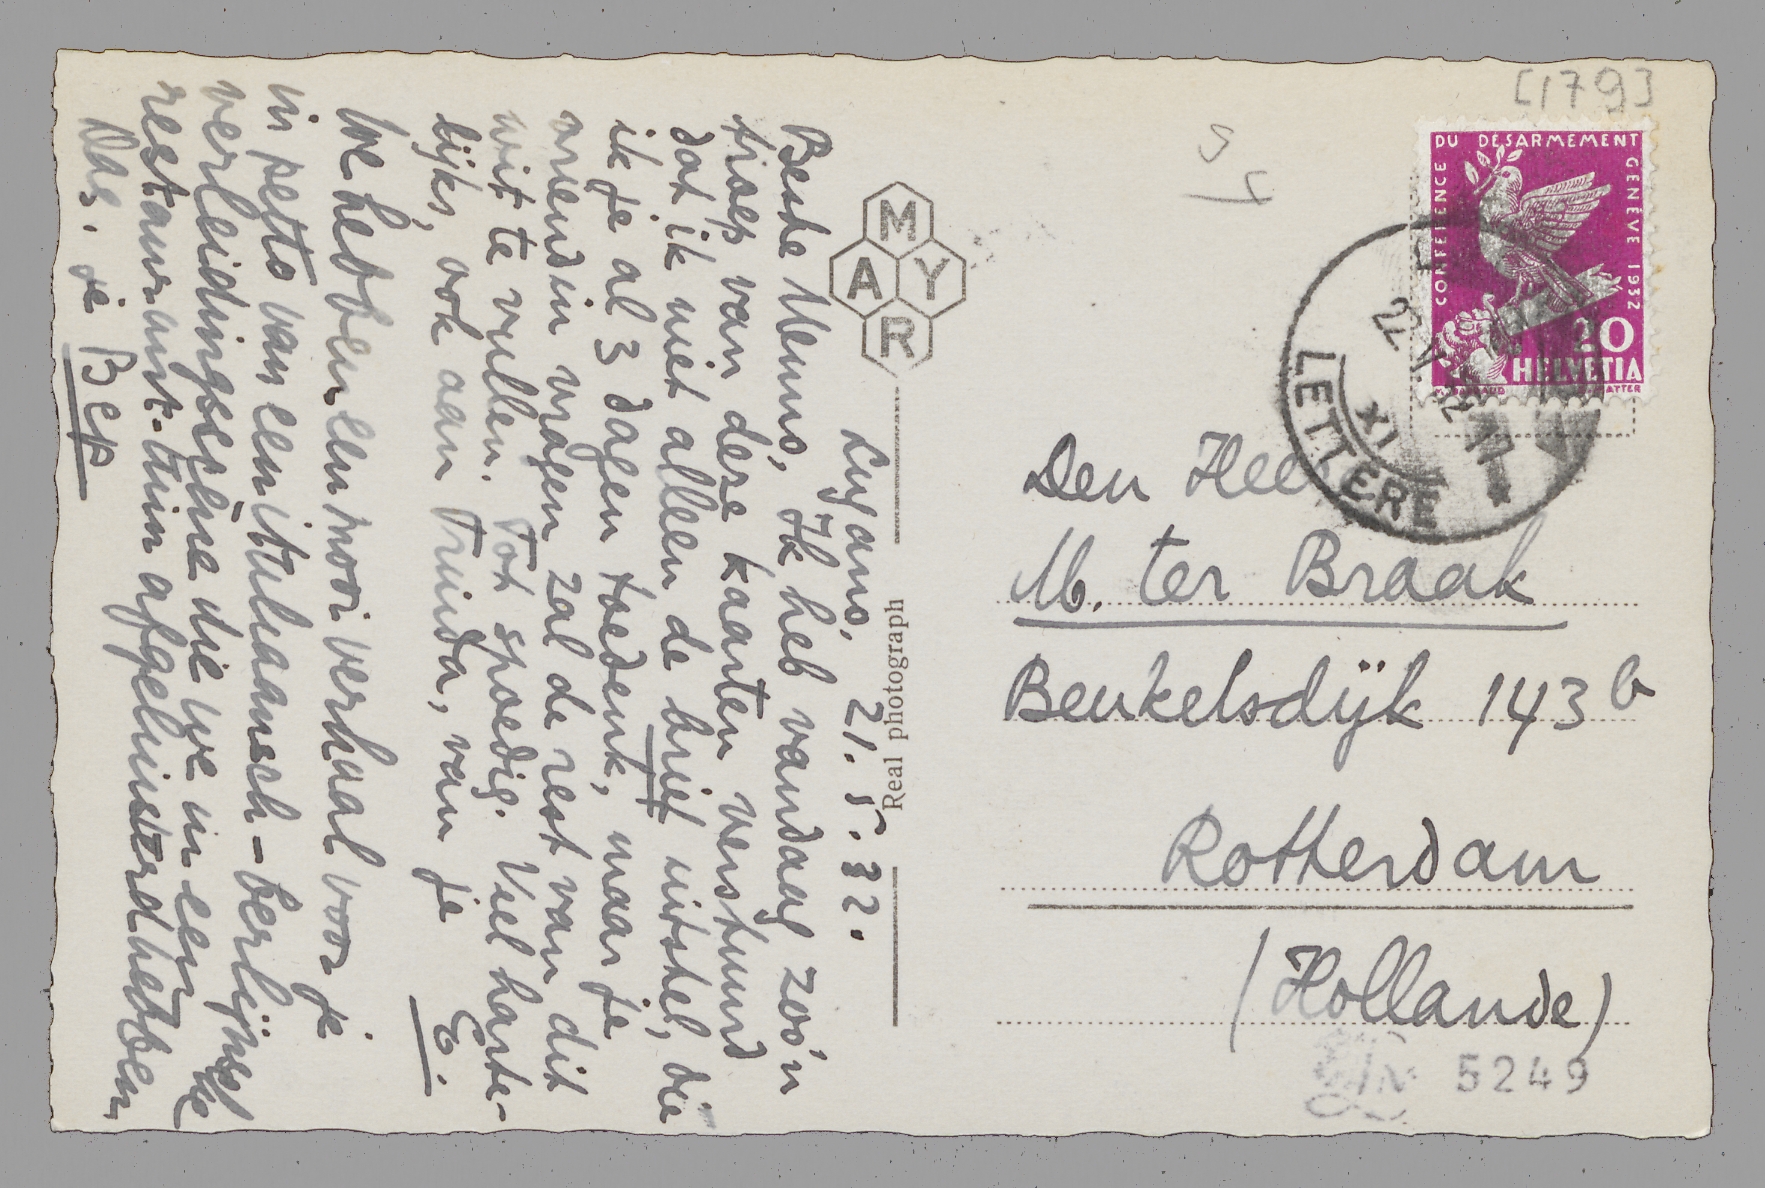 Lugano, 21.5.32.
Beste Menno, Ik heb vandaag zoo'n
troep van deze kaarten verstuurd
dat ik niet alleen de brief uitstel, die
ik je al 3 dagen toedenk, maar je
vriendin vragen zal de rest van dit
uit te vullen. Tot spoedig. Veel harte-
lijks, ook aan Truida, van je
E.
We hebben een mooi verhaal voor je
in petto van een italiaansch-berlijnsch
verleidingsscène die we in een
restaurant-tuin afgeluisterd hebben
Dag. je Bep
M
A Y
R
Real photograph
[179]
CONFERENCE DU DESARMEMENT GENÈVE 1932
20
HELVETIA
22 V
XI
LETTERE
Den Heer
M. ter Braak
Beukelsdijk 143 b
Rotterdam
(Hollande)
5249